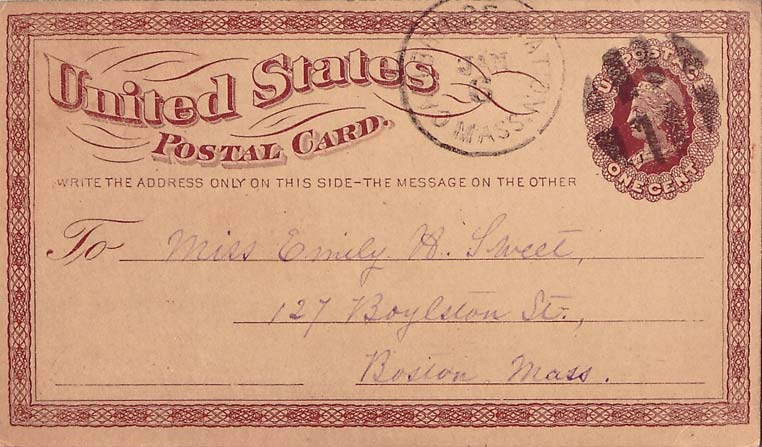 United States
POSTAL CARD.
U.S. POSTAGE
ONE CENT
MASS.
1
WRITE THE ADDRESS ONLY ON THIS SIDE–THE MESSAGE ON THE OTHER
To Miss Emily H. Sweet,
127 Boylston St.,
Boston, Mass.